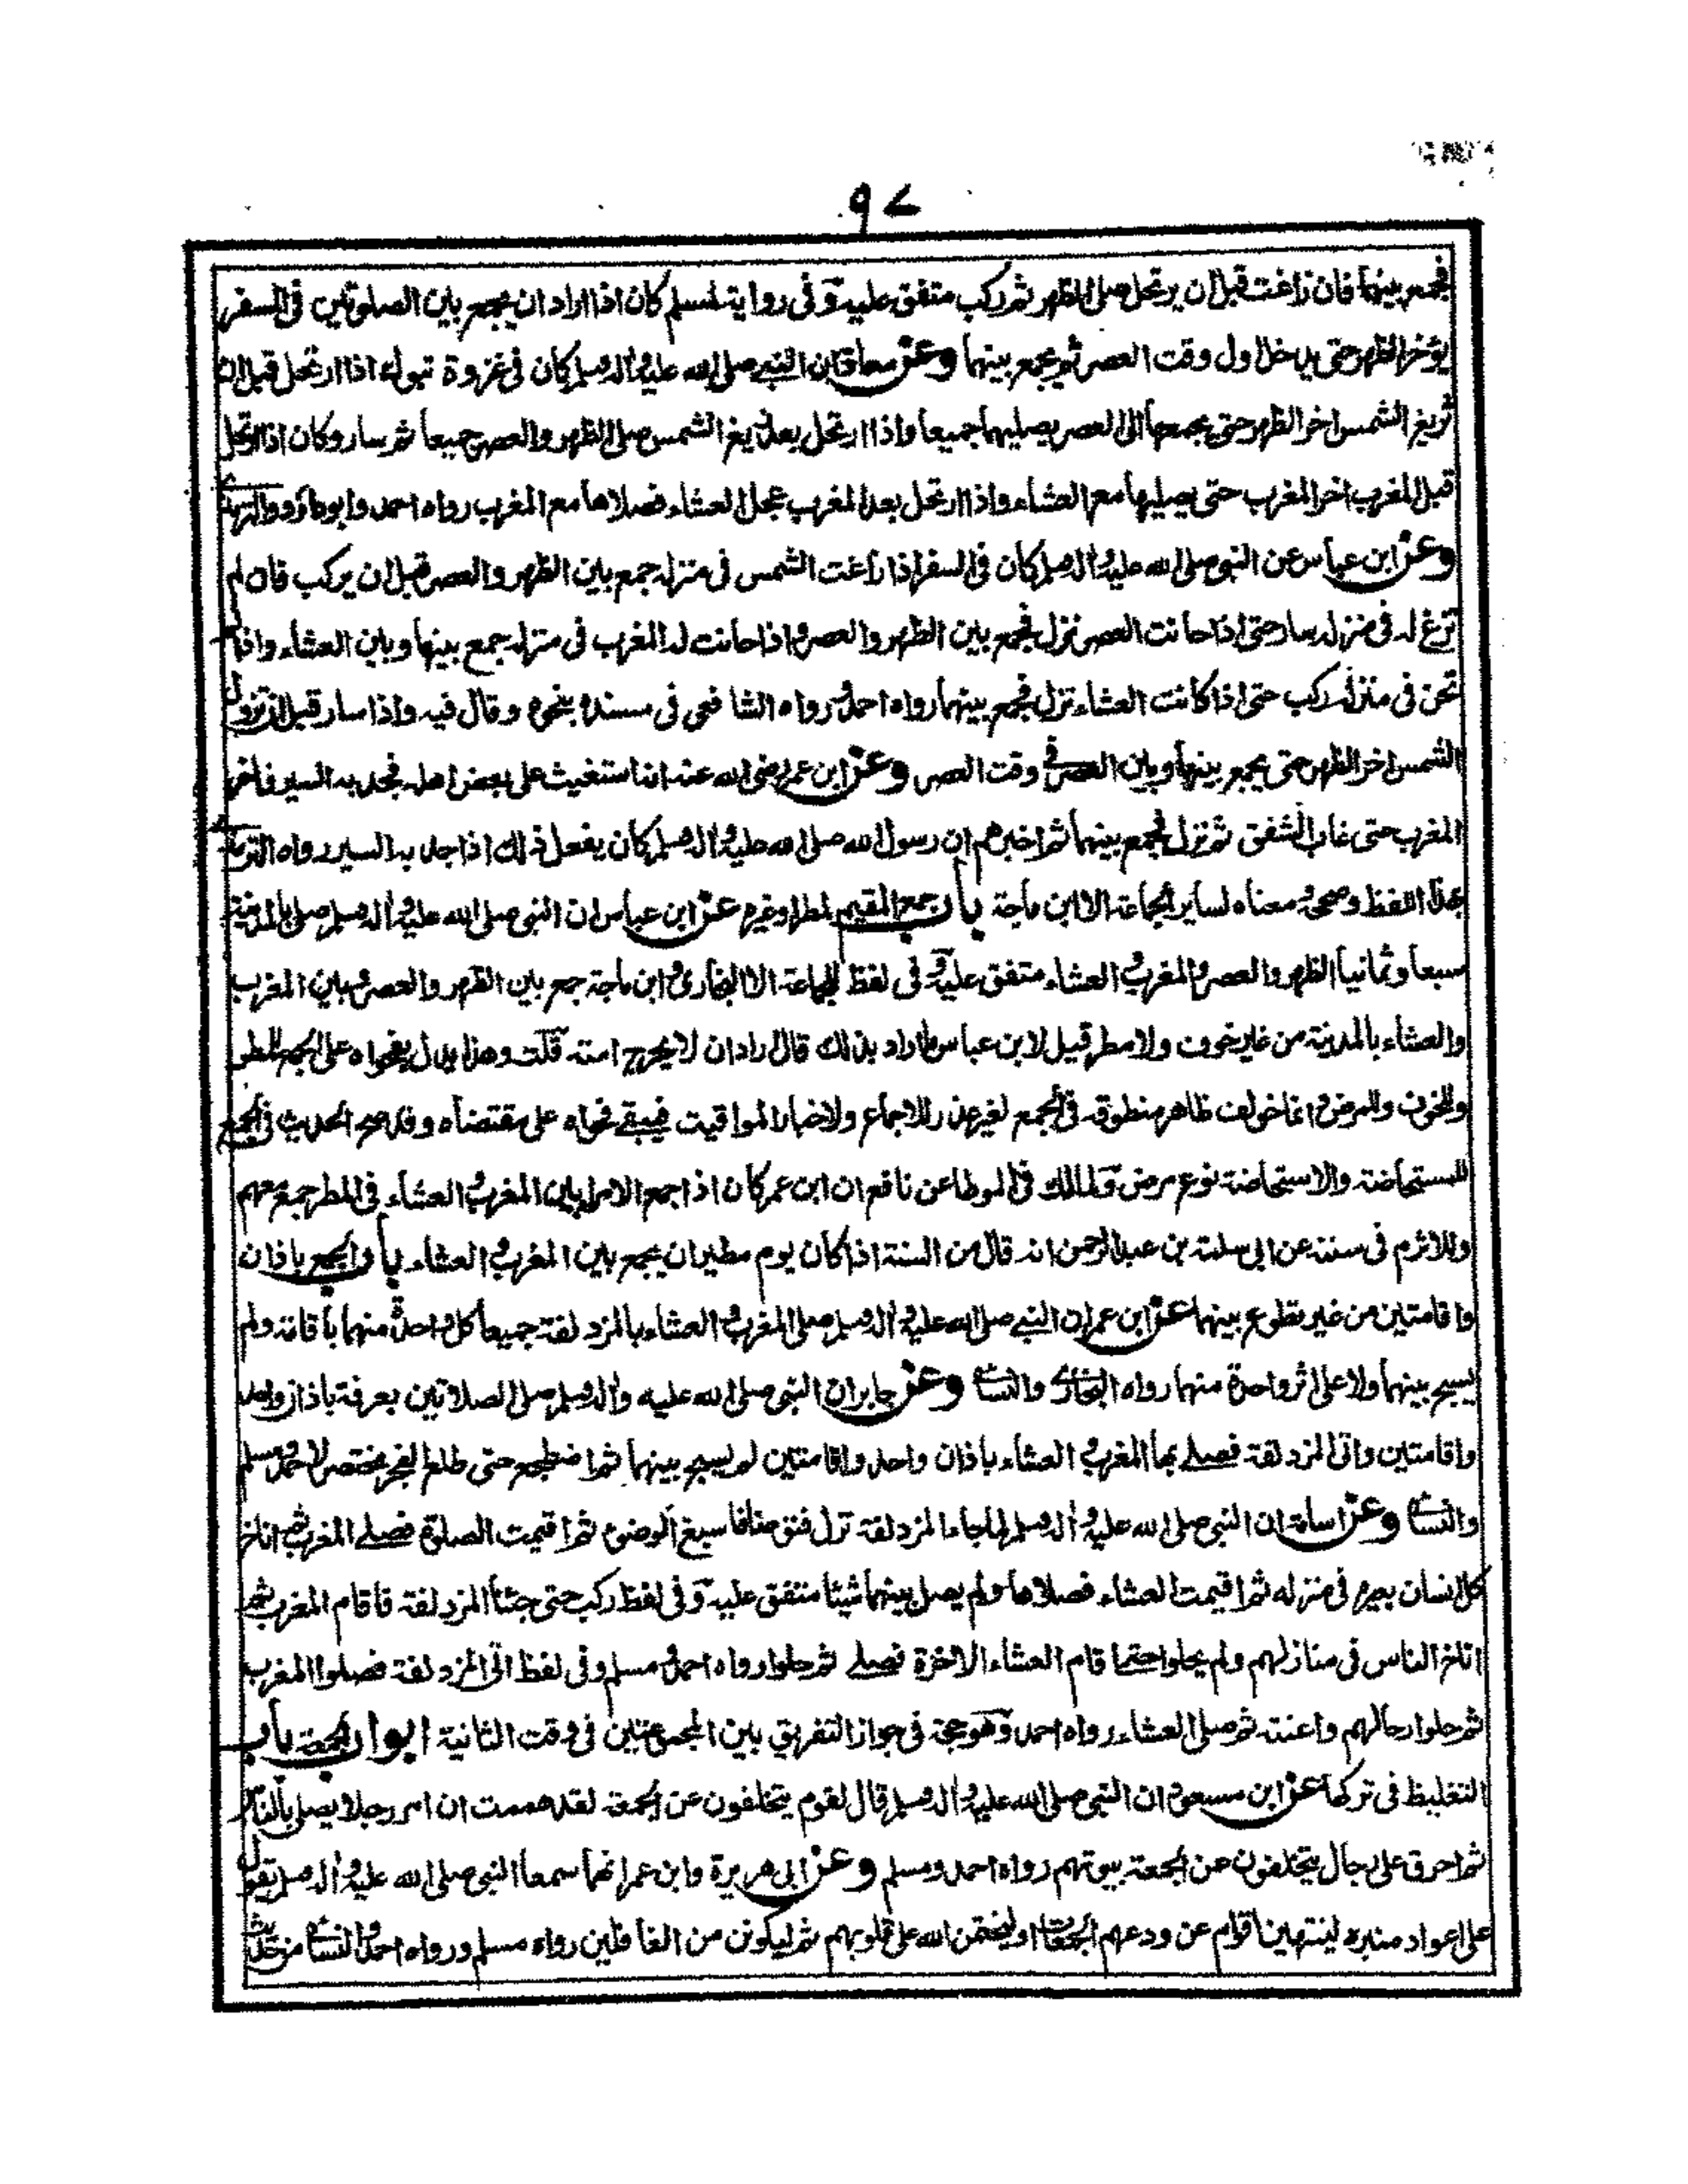 ٩٧
فجمع بينهما فان زاغت قبل ان يرتحل صلى الظهر ثم ركب متفق عليه وفى رواية لمسلم كان اذا اراد ان يجمع بين الصلوتين فى السفر
يؤخر الظهر حتى يدخل اول وقت العصر ثم يجمع بينهما وعن معاذ ان النبى صلى الله عليه واله وسلم كان فى غزوة تبوك اذا ارتحل قبل ان
تزيغ الشمس اخر الظهر حتى يجمعها الى العصر يصليهما جميعا واذا ارتحل بعد زيغ الشمس صلى الظهر والعصر جميعا ثم سار وكان اذا ارتحل
قبل المغرب اخر المغرب حتى يصليها مع العشاء واذا ارتحل بعد المغرب عجل العشاء فصلاها مع المغرب رواه احمد وابو داؤد والترمذى
وعن ابن عباس عن النبى صلى الله عليه واله وسلم كان فى السفر اذا زاغت الشمس فى منزله جمع بين الظهر والعصر قبل ان يركب فان لم
تزغ له فى منزله سار حتى اذا حانت العصر نزل فجمع بين الظهر والعصر واذا حانت له المغرب فى منزله جمع بينها وبين العشاء واذا لم
تحن فى منزله ركب حتى اذا كانت العشاء نزل فجمع بينهما رواه احمد ورواه الشافعى فى مسنده بنحوه وقال فيه واذا سار قبل ان تزول
الشمس اخر الظهر حتى يجمع بينها وبين العصر فى وقت العصر وعن ابن عمر رضى الله عنه انه استغيث على بعض اهله فجد به السير فاخر
المغرب حتى غاب الشفق ثم نزل فجمع بينهما ثم اخبرهم ان رسول الله صلى الله عليه واله وسلم كان يفعل ذلك اذا جد به السير رواه الترمذى
بهذا اللفظ وصححه ومعناه لساير الجماعة الا ابن ماجة باب جمع المقيم لمطر اوغيره عن ابن عباس ان النبى صلى الله عليه واله وسلم صلى بالمدينة
سبعا وثمانيا الظهر والعصر والمغرب والعشاء متفق عليه وفى لفظ للجماعة الا البخارى وابن ماجة جمع بين الظهر والعصر وبين المغرب
والعشاء بالمدينة من غير خوف ولا مطر قيل لابن عباس ما اراد بذلك قال اراد ان لا يحرج امته قلت وهذا يدل بفحواه على الجمع للمطر
وللخوف وللمرض وانما خولف ظاهر منطوقه فى الجمع لغير عذر للاجماع ولاخبار المواقيت فيبقى فحواه على مقتضاه وقد صح الحديث فى الجمع
للمستحاضة والاستحاضة نوع مرض ولمالك فى الموطا عن نافع ان ابن عمر كان اذا جمع الامراء بين المغرب والعشاء فى المطر جمع معهم
وللاثرم فى سننه عن ابى سلمة بن عبد الرحمن انه قال من السنة اذا كان يوم مطير ان يجمع بين المغرب والعشاء باب الجمع باذان
واقامتين من غير تطوع بينهما عن ابن عمر ان النبى صلى الله عليه واله وسلم صلى المغرب والعشاء بالمزدلفة جميعا كل واحدة منهما باقامة ولم
يسبح بينهما ولا على اثر واحدة منهما رواه البخارى والنسائى وعن جابر ان النبى صلى الله عليه واله وسلم صلى الصلاتين بعرفة باذان واحد
واقامتين واتى المزدلفة فصلى بها المغرب والعشاء باذان واحد واقامتين لم يسبح بينهما ثم اضطجع حتى طلع الفجر مختصر لاحمد ومسلم
والنسائى وعن اسامة ان النبى صلى الله عليه واله وسلم لما جاء المزدلفة نزل فتوضا فاسبغ الوضوء ثم اقيمت الصلوة فصلى المغرب ثم اناخ
كل انسان بعيره فى منزله ثم اقيمت العشاء فصلاها ولم يصل بينهما شيئا متفق عليه وفى لفظ ركب حتى جئنا المزدلفة فاقام المغرب ثم
اناخ الناس فى منازلهم ولم يحلوا حتى اقام العشاء الاخرة فصلى ثم حلوا رواه احمد ومسلم وفى لفظ اتى المزدلفة فصلوا المغرب
ثم حلوا رحالهم واعنته ثم صلى العشاء رواه احمد وهو حجة فى جواز التفريق بين المجموعتين فى وقت الثانية ابواب الجمعة باب
التغليظ فى تركها عن ابن مسعود ان النبى صلى الله عليه واله وسلم قال لقوم يتخلفون عن الجمعة لقد هممت ان امر رجلا يصلى بالناس
ثم احرق على رجال يتخلفون عن الجمعة بيوتهم رواه احمد ومسلم وعن ابى هريرة وابن عمر انهما سمعا النبى صلى الله عليه واله وسلم يقول
على اعواد منبره لينتهين اقوام عن ودعهم الجمعات او ليختمن الله على قلوبهم ثم ليكونن من الغافلين رواه مسلم ورواه احمد والنسائى من حديث